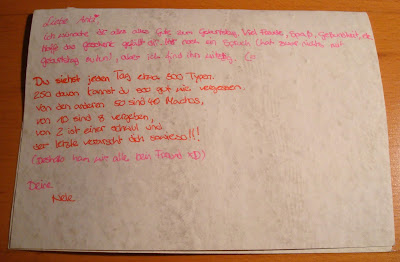 Liebe Anki
Ich wünsche dir alles alles Gute zum Geburtstag, viel Freunde, Spaß, Gesundheit, etc.
hoffe das geschenk gefällt dir! Hier noch ein Spruch (hat zwar nichts mit
Geburtstag zu tun), aber ich find ihn witzig
Du siehst jeden Tag etwa 500 Typen.
250 davon kannst du so gut wie vergessen.
von den anderen 50 sind 40 Machos,
von 10 sind 8 vergeben,
von 2 ist einer schwul und
der letzte verarscht dich sowieso!!!
(deshalb ham wir alle kein Freund XD)
Deine
Nele